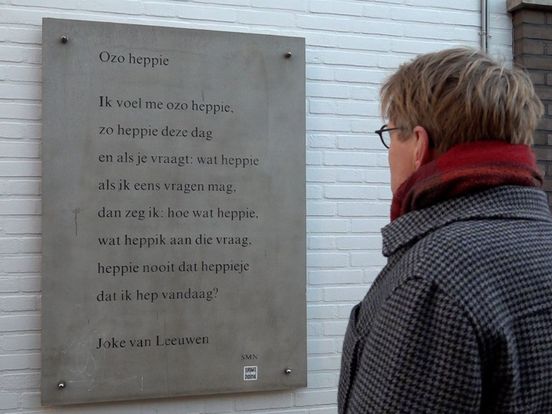 Ozo heppie
Ik voel me ozo heppie,
zo heppie deze dag
en als je vraagt: wat heppie
als ik eens vragen mag,
dan zeg ik: hoe wat heppie,
wat heppik aan die vraag,
heppie nooit dat heppieje
dat ik hep vandaag?
Joke van Leeuwen
SMN